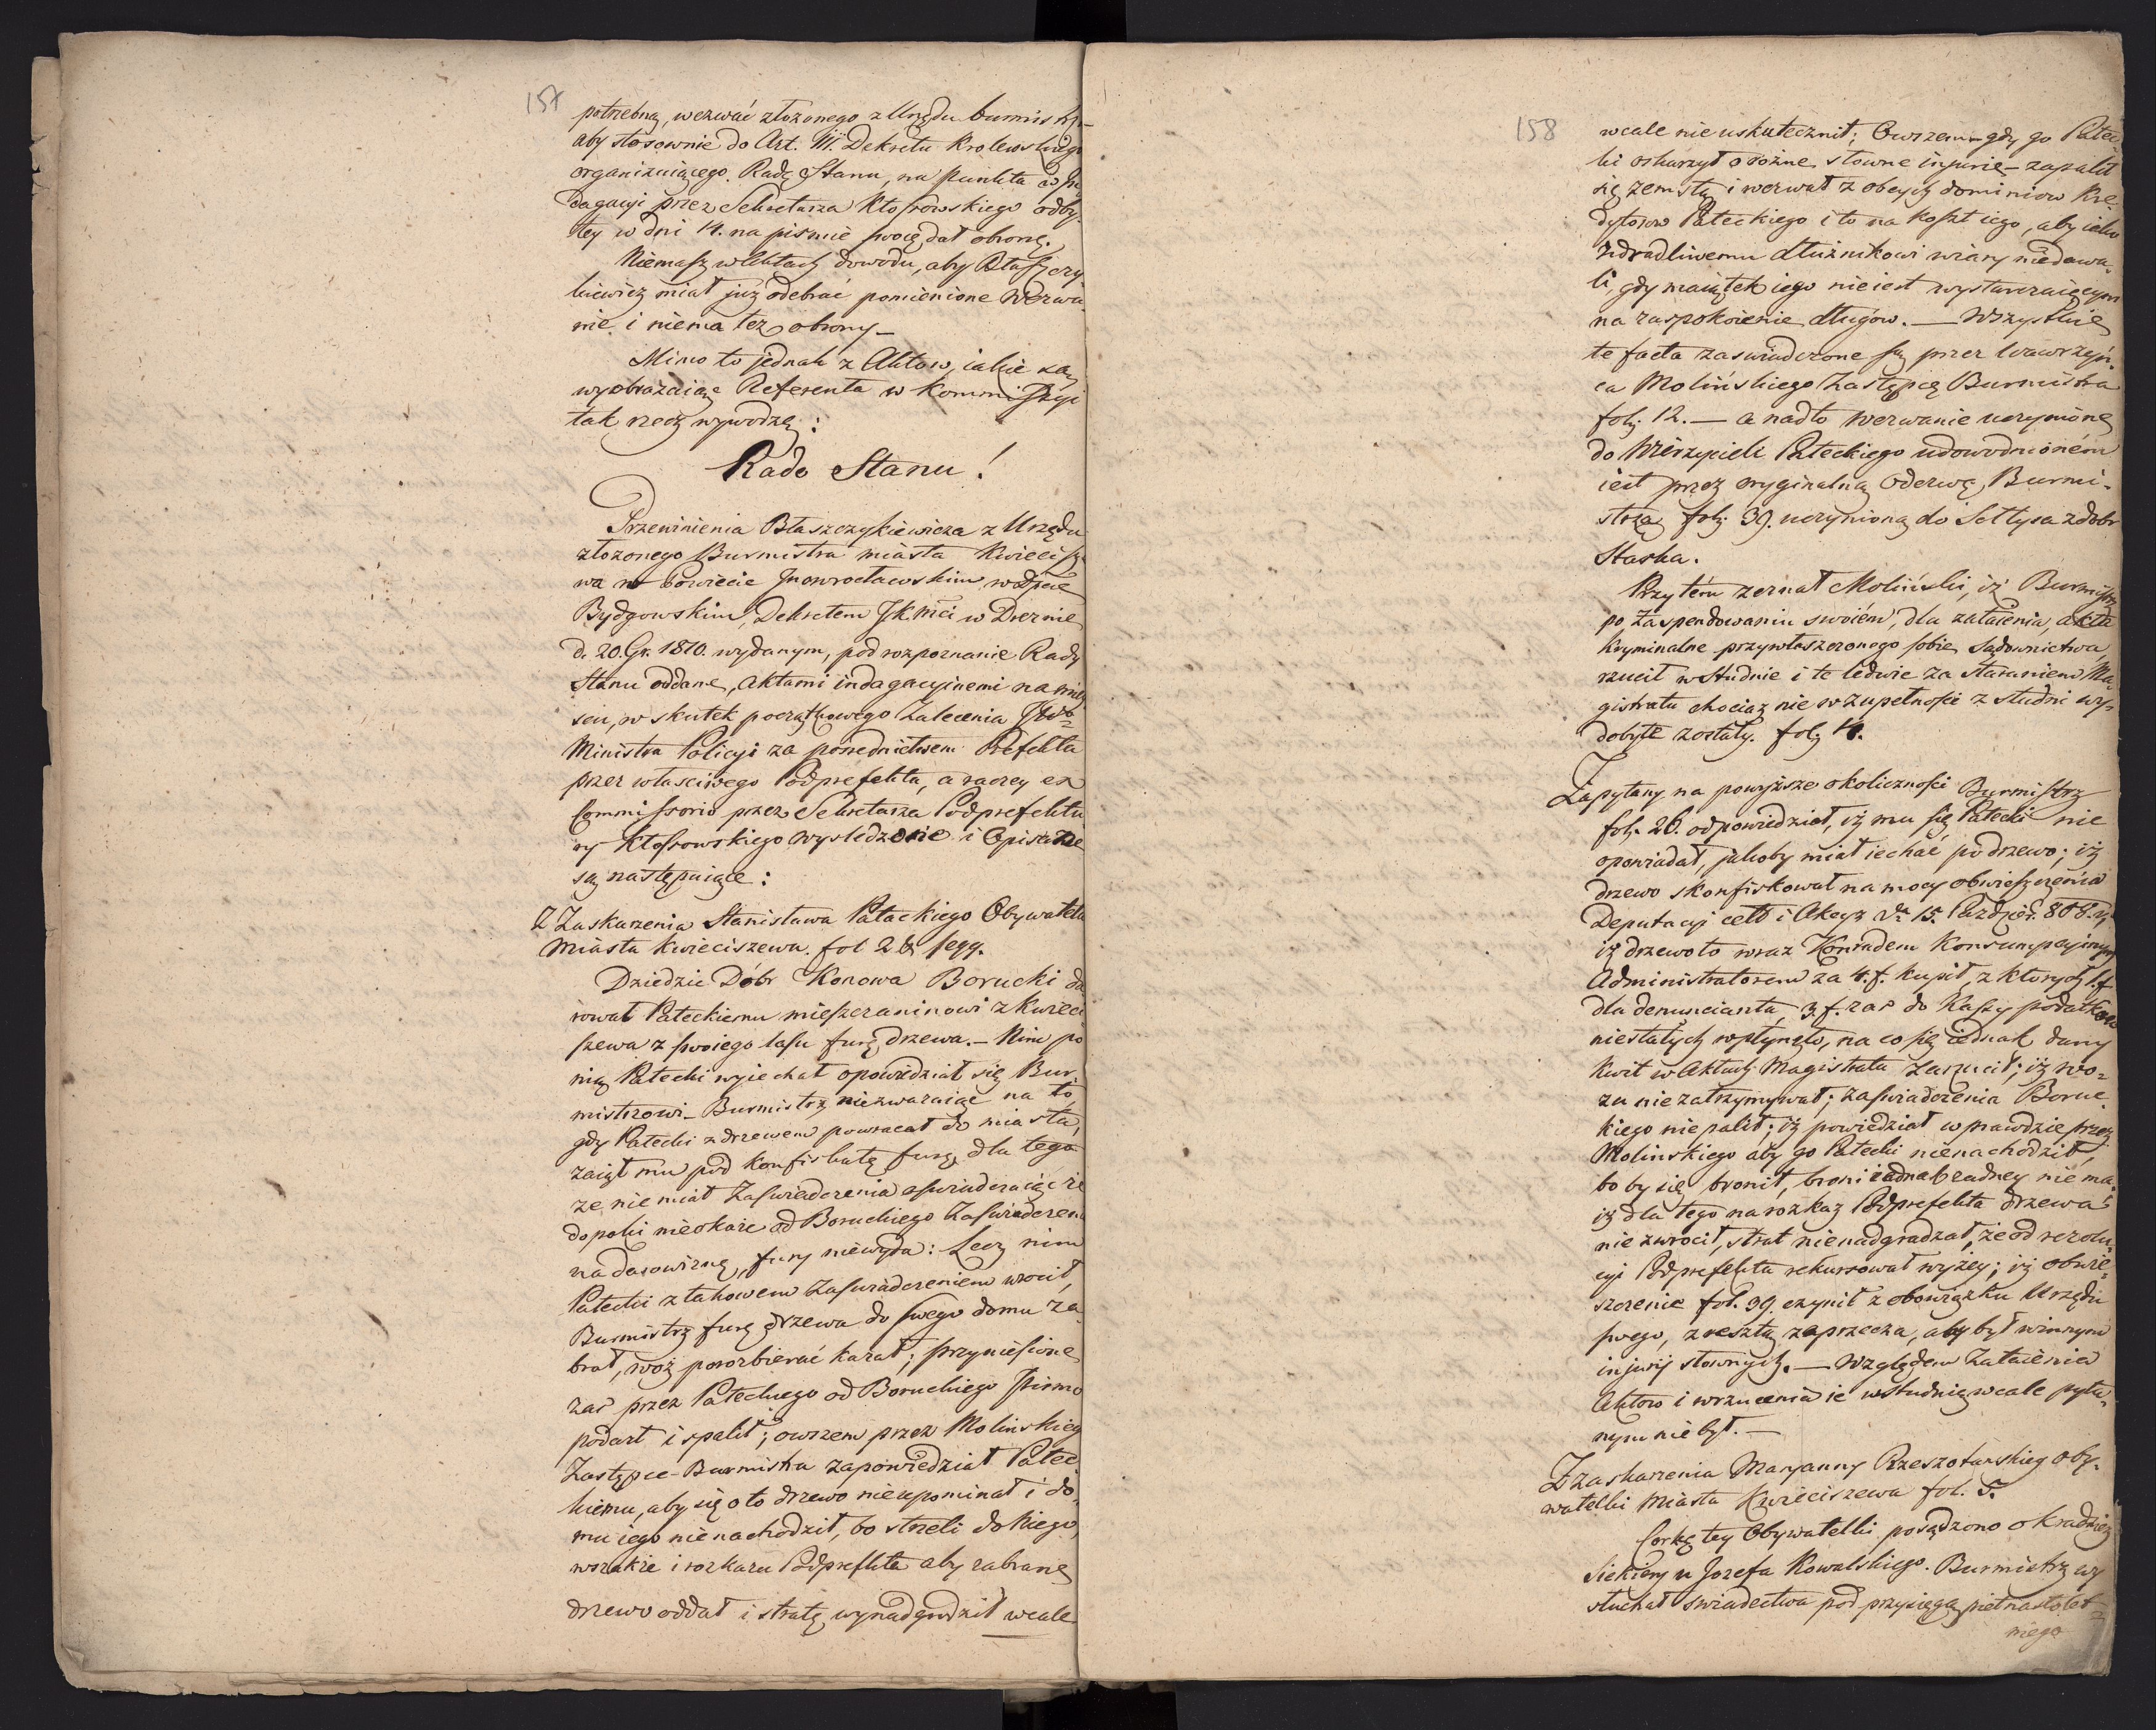 157
potrzebną, wezwać złożonego z Urzędu burmistrz
aby stosownie do Art. III. Dekretu Krolewskiego
organizuiącego Radę Stanu, na punkta
dagacyi przez Sekretarza Kłossowskiego odby
tey w dni 14. na pismie swoię dał obronę.
Niemasz w Aktach dowodu, aby Błaszczy
kiewicz miał już odebrać pomienione wezwa
nie i niema tez obrony_
Mimo to jednak z Aktow, iakie są,
wyobrażaiąc Referenta w Kommissyi
tak rzecz wywodzę:
Rado Stanu!
Przewinienia Błaszczykiewicza z Urzędu
złożonego Burmistra miasta Kwiecisz
wa w Powiecie Jnowrocławskim w Dpcie
Bydgowskim, Dekretem JKMci w Dreznie
d. 20. Gr. 1810. wydanym, pod rozpoznanie Rady
Stanu oddane, Aktami indagacyinemi na miey
scu, w skutek początkowego Zalecenia JW
Ministra Policyi za posrednictwem Prefekta
przez własciwego Podprefekta, a raczey ex
Commissorio przez Sekretarza Podprefektu
ry Kłossowskiego wysledzone i Opisane
są następuiące:
Z Zaskarzenia Stanisława Pateckiego Obywatela
Miasta Kwieciszewa. fol 2 & seqq.
Dziedzic Dóbr Konowa Borucki da
rował Pateckiemu mieszczaninowi z Kwieci
szewa z swoiego lasu furę drzewa._ Nim po
nią Patecki wyiechał opowiedział się Bur
mistrzowi_ Burmistrz niezwazaiąc na to,
gdy Patecki z drzewem powracał do miasta,
zaiął mu pod konfiskatę furę, dla tego
ze nie miał Zaswiadczenia oswiadczaiąc ze
dopoki nieokaże od Boruckiego Zaswiadczenia
na darowiznę, fury niewyda: Lecz nim
Patecki z takowem Zaswiadczeniem wrocił,
Burmistrz furę drzewa do swego domu za
brał, woz porozbierać kazał; przyniesione
zas przez Pateckiego od Boruckiego Pismo
podarł i spalił; owszem przez Molinskieg
Zastępce Burmistra zapowiedział Patec
kiemu, aby się o to drzewo nieupominał i do
mu iego nienachodził, bo strzeli do Niego,
wszakże i rozkazu Podprefekta aby zabrane
drzewo oddał i stratę wynadgrodził wcale
158
wcale nieuskutecznił; Owszem_ gdy go Patec
ki oskarzył o rożne słowne injurie_ zapalił
się zemstą i wezwał z obcych dominiow Kre
dytorow Pateckiego i to na koszt iego, aby iako
zdradliwemu dłużnikowi wiary niedawa
li, gdy maiątek iego nieiest wystarczaiącym
na zaspokoienie długow. — Wszystkie
te facta zaswiadczone są przez Wawrzyń
ca Molińskiego Zastępcę Burmistra
folj. 12. — a nadto wezwanie uczynione
do Wierzycieli Pateckiego udowodnioném
iest przez oryginalną Odezwę Burmi-
strza folj. 39. uczynioną do Sołtysa z dobr
Starka.
Przytém zeznał Moliński, iż Burmistrz
po Zaspendowaniu swoiém, dla zataienia, akta
kryminalne przywłaszczonego sobie Sądownictwa,
rzucił w studnie i te ledwie za staraniem Ma
gistratu chociaż nie w zupełności z studni wy-
dobyte zostały. folj 11.
Zapytany na powyższe okoliczności Burmistrz
folj. 26. odpowiedział, iż mu się Patecki nie
opowiadał, jakoby miał iechać po drzewo; iż
drzewo skonfiskował na mocy obwieszczenia
Deputacyi ceł i Akcyz de 15. Paździer. 808. y
iż drzewo to wraz Konradem Konsumpcyinym
Administratorem za 4. f. kupił, z ktorych 1. f.
dla denuncianta, 3. f. zas do Kassy podatkow
niestałych wpłynęło, na co się iednak dany
Kwit w Aktach Magistratu zarzucił; iż wo-
zu nie zatrzymywał; Zaswiadczenia Boruc
kiego nie palił; iż powiedział wprawdzie przez
Molinskiego aby go Patecki nienachodził,
bo by się bronił, broni iednak żadney nie ma;
iż dla tego na rozkaz Podprefekta drzewa
nie zwrocił, strat nienadgradzał, że od rezolu
cyi Podprefekta rekursował wyżey; iż obwie
szczenie fol. 39. czynił z obowiązku Urzędu
swego, zresztą zaprzecza, aby był winnym
injurij słownych. — Względem Zataienia
Aktow i wrzucenia ie w studnię wcale pyta
nym nie był. —
Z zaskarzenia Maryanny Rzeszotarskiey oby-
watelki Miasta Kwieciszewa fol. 5.
Corkę tey Obywatelki posądzono o Kradzież
Siekiery u Jozefa Kowalskiego. Burmistrz wy
słuchał swiadectwa pod przysięgą pietnastolet
niego